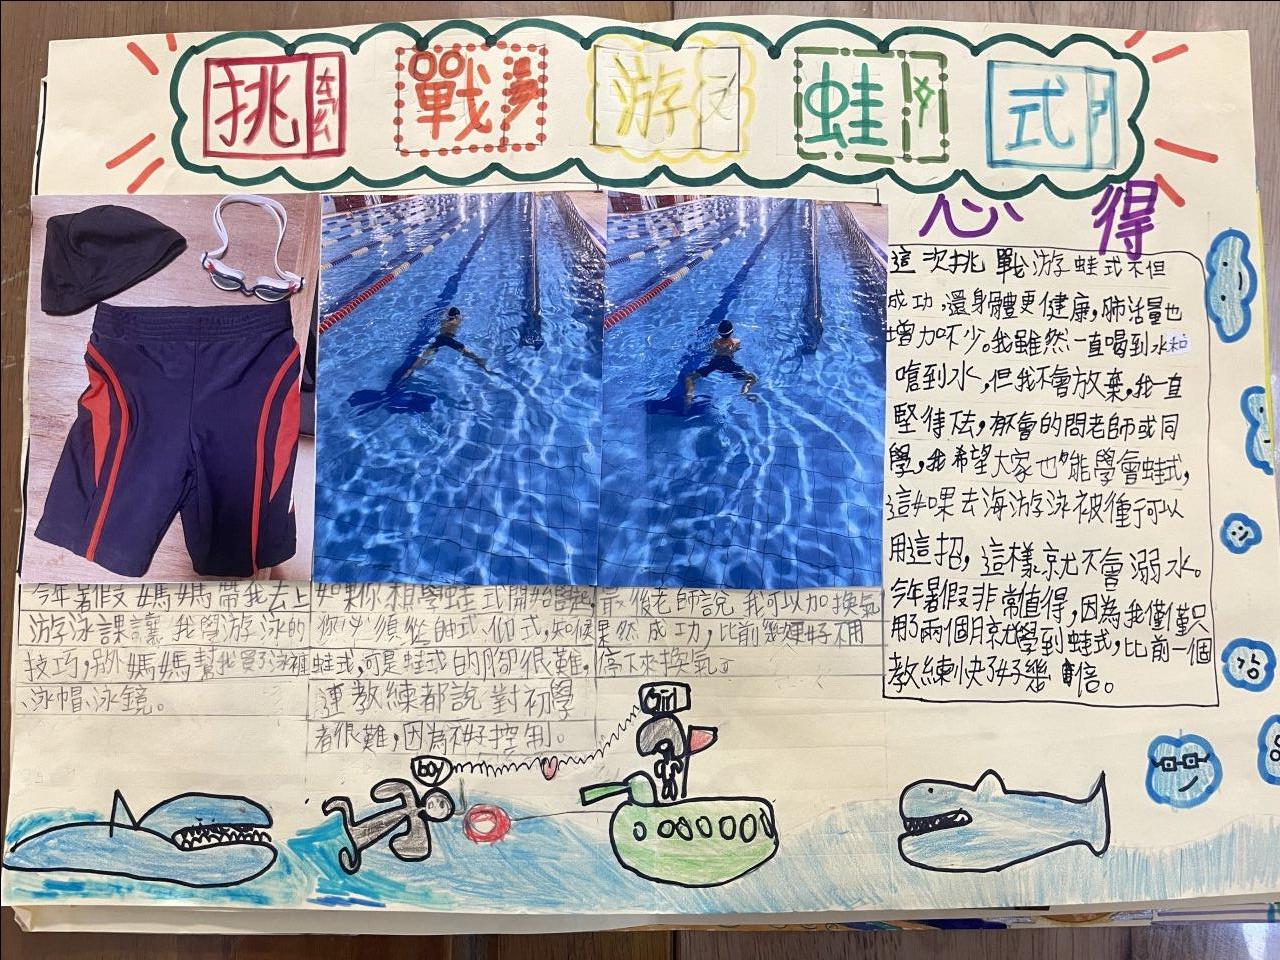 挑戰游蛙式
心得
這次挑戰游蛙式不但
成功,還身體更健康,肺活量也
增加不少。我雖然一直喝到水和
嗆到水,但我不會放棄,我一直
堅持下去,都會的問老師或同
學,我希望大家也能學會蛙式,
這如果去海游泳被撞可以
用這招,這樣就不會溺水。
今年暑假非常值得,因為我僅僅只
用了兩個月就學到蛙式,比前一個
教練快了好幾倍。
今年暑假媽媽帶我去上
游泳課讓我學游泳的
技巧,另外媽媽幫我買了泳褲
、泳帽、泳鏡。
如果你想學蛙式開始
你必須從帥式、仰式,知
蛙式,可是蛙式的腳很難,
連教練都說對初學
者很難,因為不好控制。
最後老師說我可以加換氣
果然成功,比前幾好不用
停下來換氣了
Girl
boy